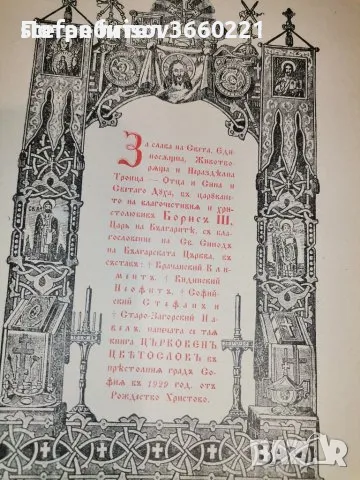 Потребител 3660221
За слава на Света, Еди-
носѫщна, Животво-
рѧща и Нераздѣлна
Троица — Отца и Сина и
Светаго Духа, въ царуванѥ-
то на благочестивия и хри-
столюбивъ Борисъ III,
Царь на Българитѣ, съ бла-
гословение на Св. Синодъ
на Българската Църква, въ
съставъ: † Врачански Кли-
ментъ, † Видински
Неофитъ, † Софий-
ский Стефанъ и †
Старо-Загорский Па-
велъ, напечата се таѧ
книга ЦЪРКОВЕНЪ
ЦВѢТОСЛОВЪ въ
прѣстолния градъ
София въ 1929 год. отъ
Рождество Христово.
BAZAR